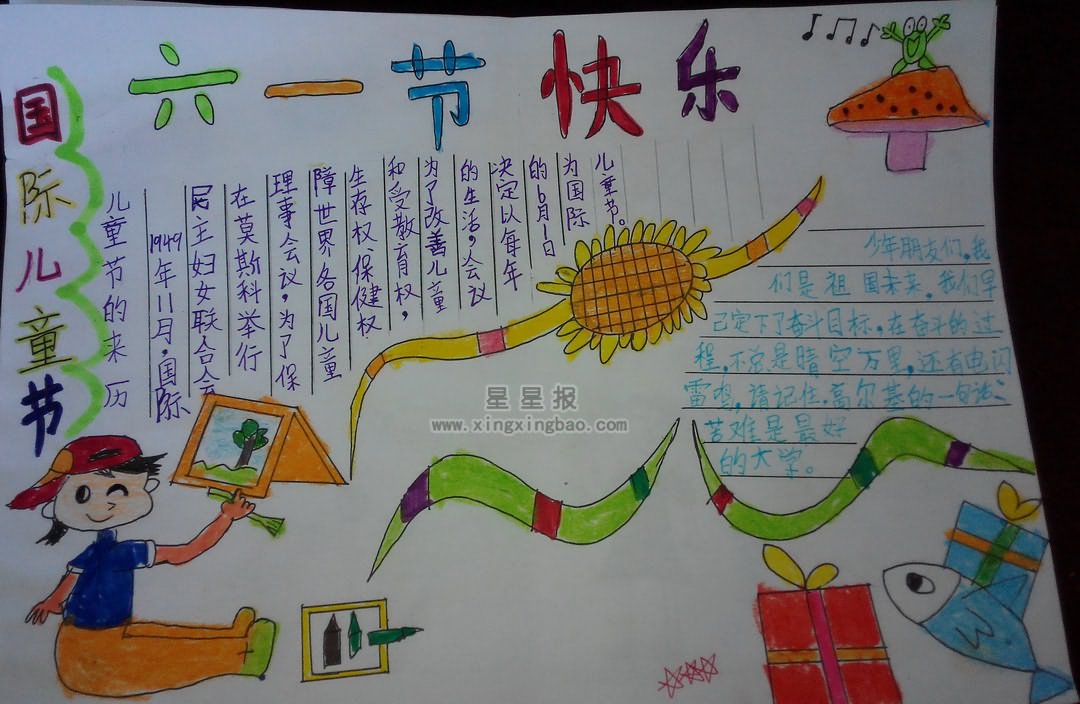 六一节快乐
国际儿童节
儿童节的来历
1949年11月,国际
民主妇女联合会
在莫斯科举行
理事会议,为了保
障世界各国儿童
生存权保健权
和受教育权,
为了改善儿童
的生活,会议
决定以每年
的6月1日
为国际
儿童节。
少年朋友们,我
们是祖国未来,我们早
已定下了奋斗目标,在奋斗的过
程,不总是晴空万里,还有电闪
雷鸣,请记住,高尔基的一句话:
苦难是最好
的大学。
星星报
www.xingxingbao.com